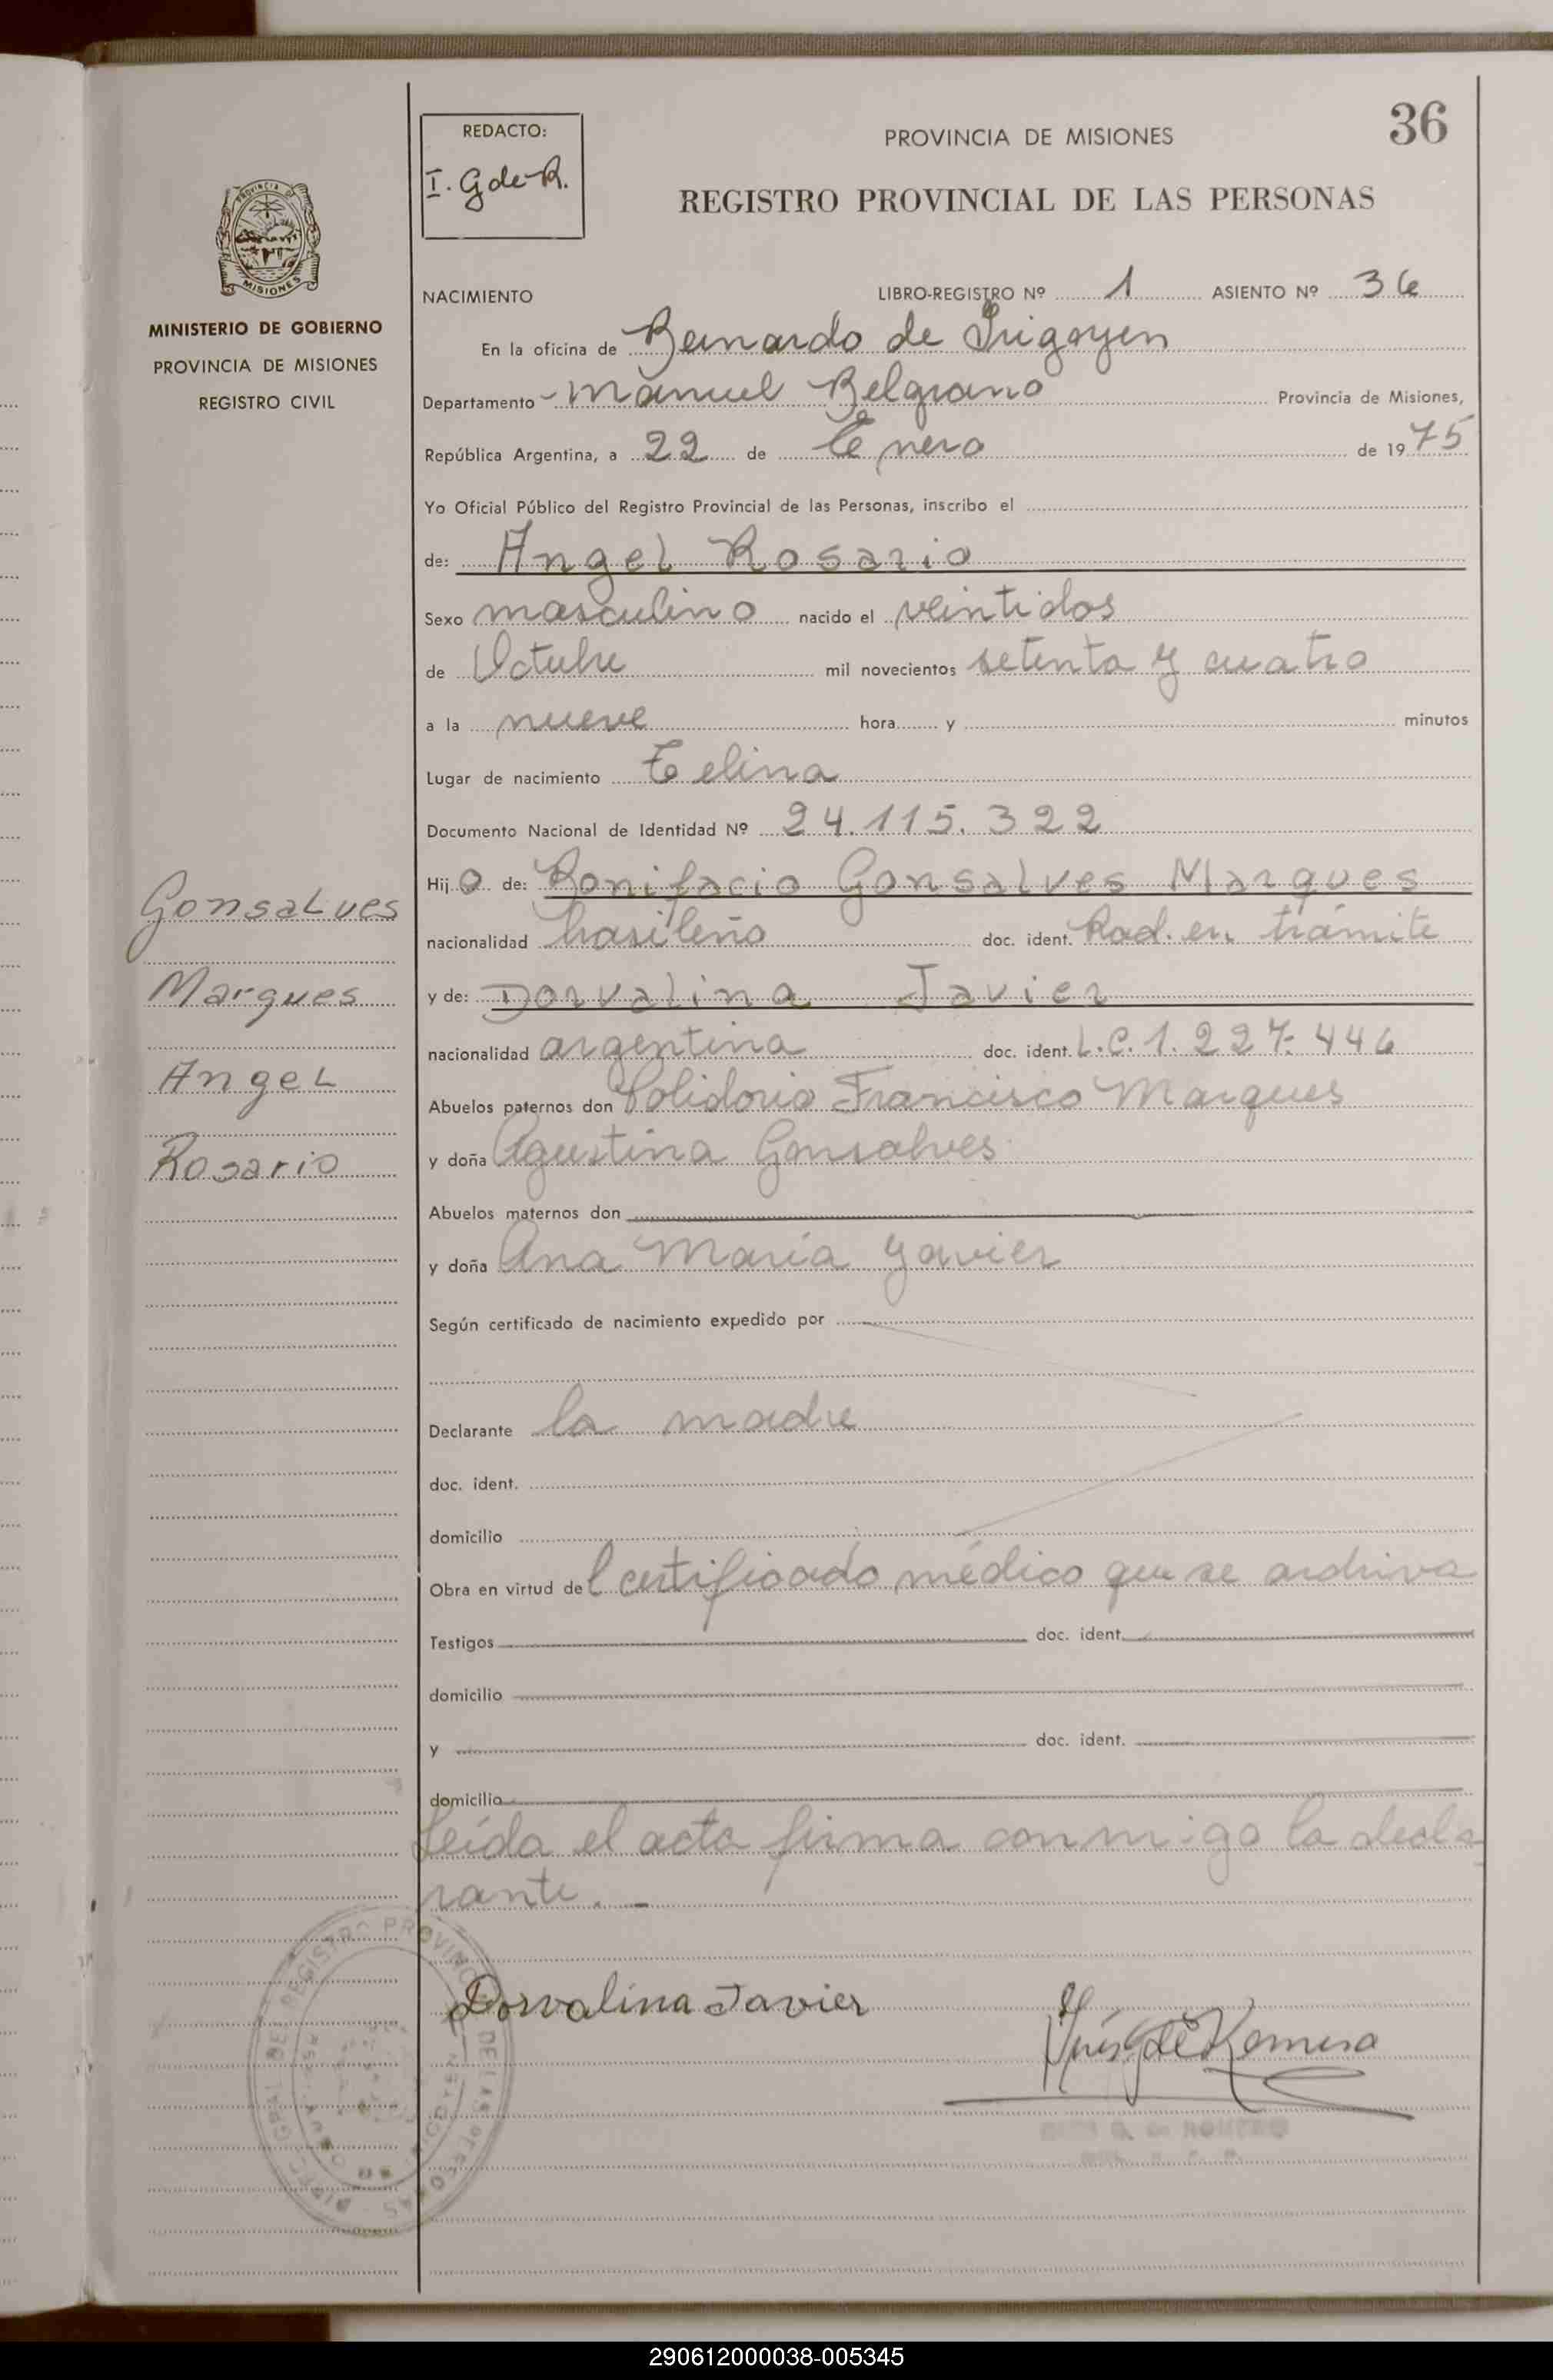 36
REDACTO:
I. G de R.
PROVINCIA DE MISIONES
REGISTRO PROVINCIAL DE LAS PERSONAS
PROVINCIA DE
MISIONES
MINISTERIO DE GOBIERNO
PROVINCIA DE MISIONES
REGISTRO CIVIL
NACIMIENTO LIBRO-REGISTRO Nº 1 ASIENTO Nº 36
En la oficina de Bernardo de Irigoyen
Departamento Manuel Belgrano Provincia de Misiones,
República Argentina, a 22 de Enero de 1975
Yo Oficial Público del Registro Provincial de las Personas, inscribo el
de: Angel Rosario
Sexo masculino nacido el veintidos
de Octubre mil novecientos setenta y cuatro
a la nueve hora y minutos
Lugar de nacimiento
Documento Nacional de Identidad Nº 24.115.322
Hijo de: Bonifacio Gonsalves Marques
nacionalidad brasileño doc. ident. Rad. en trámite
y de: Dorvalina Javier
nacionalidad argentina doc. ident. L.C. 1.227.446
Abuelos paternos don Polidorio Francisco Marques
y doña Agustina Gonsalves
Abuelos maternos don
y doña Ana Maria Yavier
Según certificado de nacimiento expedido por
Declarante la madre
doc. ident.
domicilio
Obra en virtud del certificado médico que se archiva
Testigos doc. ident.
domicilio
y doc. ident.
domicilio
Leída el acta firma conmigo la decla
rante. -
Gonsalves
Marques
Angel
Rosario
Dorvalina Javier
Inés G de Romero
290612000038-005345